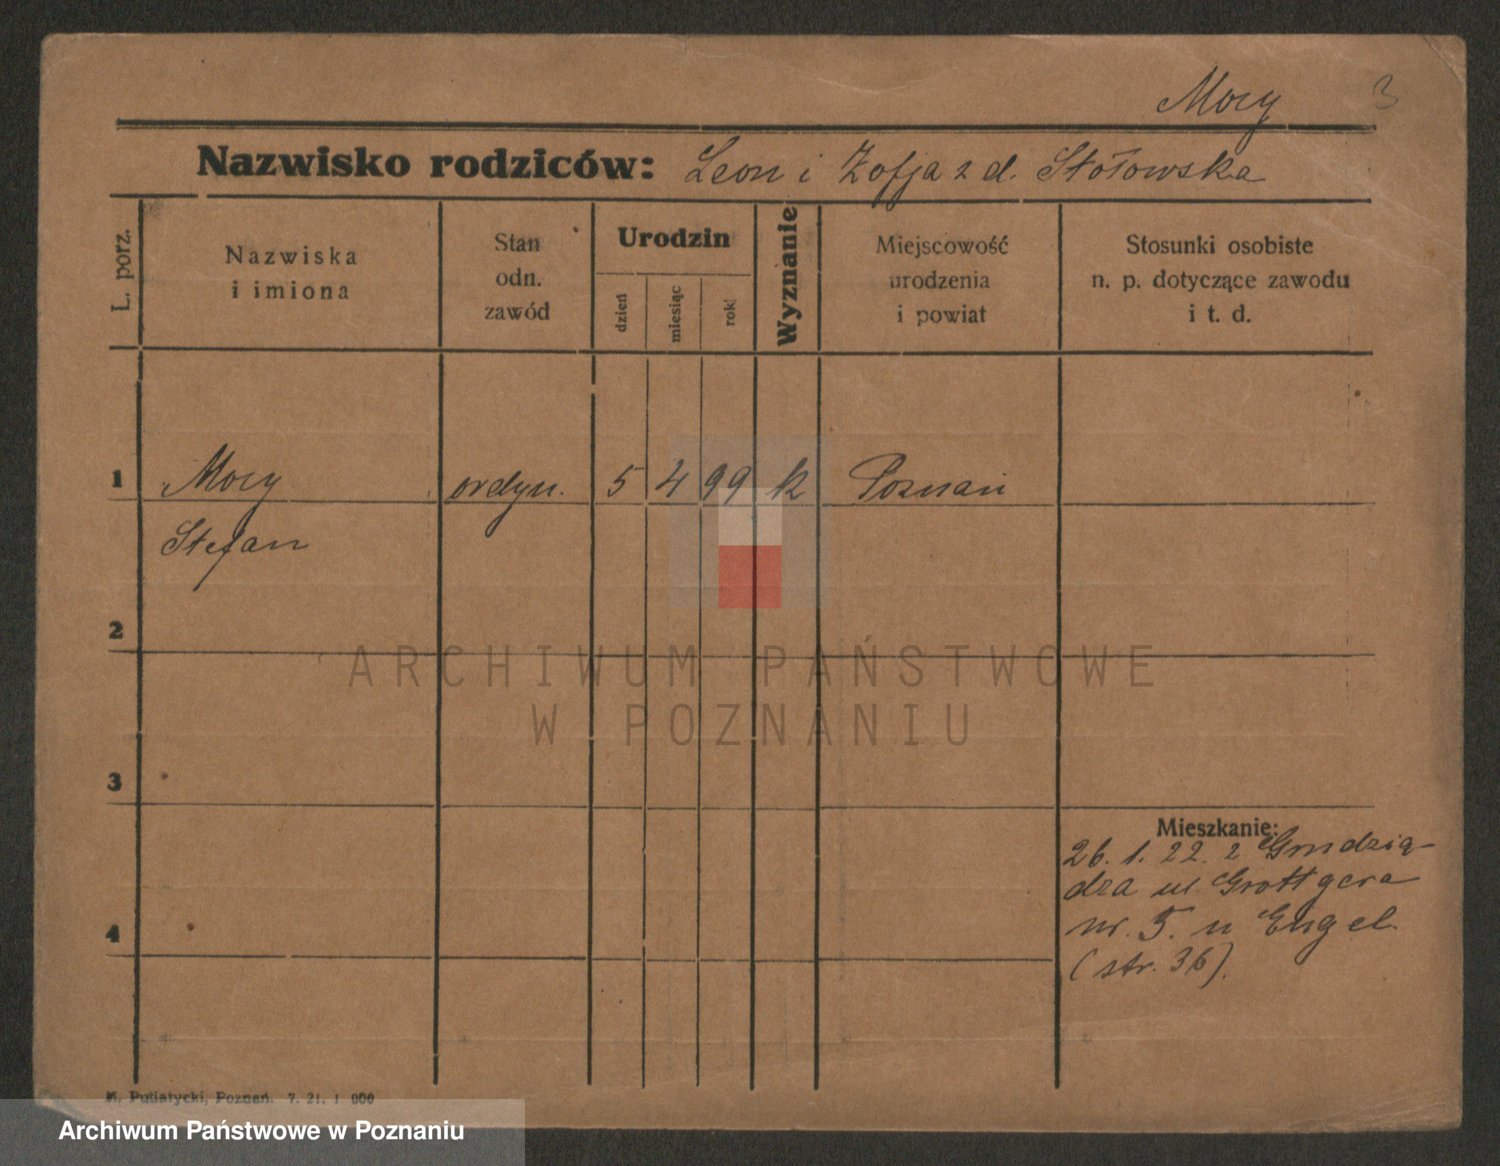 Mocy 3
Nazwisko rodziców: Leon i Zofja z d. Stołowska
L. porz.
Nazwiska
i imiona
Stan
odn.
zawód
Urodzin
dzień
miesiąc
rok
Wyznanie
Miejscowość
urodzenia
i powiat
Stosunki osobiste
n. p. dotyczące zawodu
i t. d.
1 Mocy ordyn. 5 4 99 k Poznań
Stefan
2
3
4
Mieszkanie:
26. 1. 22. z Grudzią-
dza ul. Grottgera
nr. 5. u Engel
(str. 36).
M. Putiatycki, Poznań. 7. 21. 1 000
ARCHIWUM PAŃSTWOWE
W POZNANIU
Archiwum Państwowe w Poznaniu